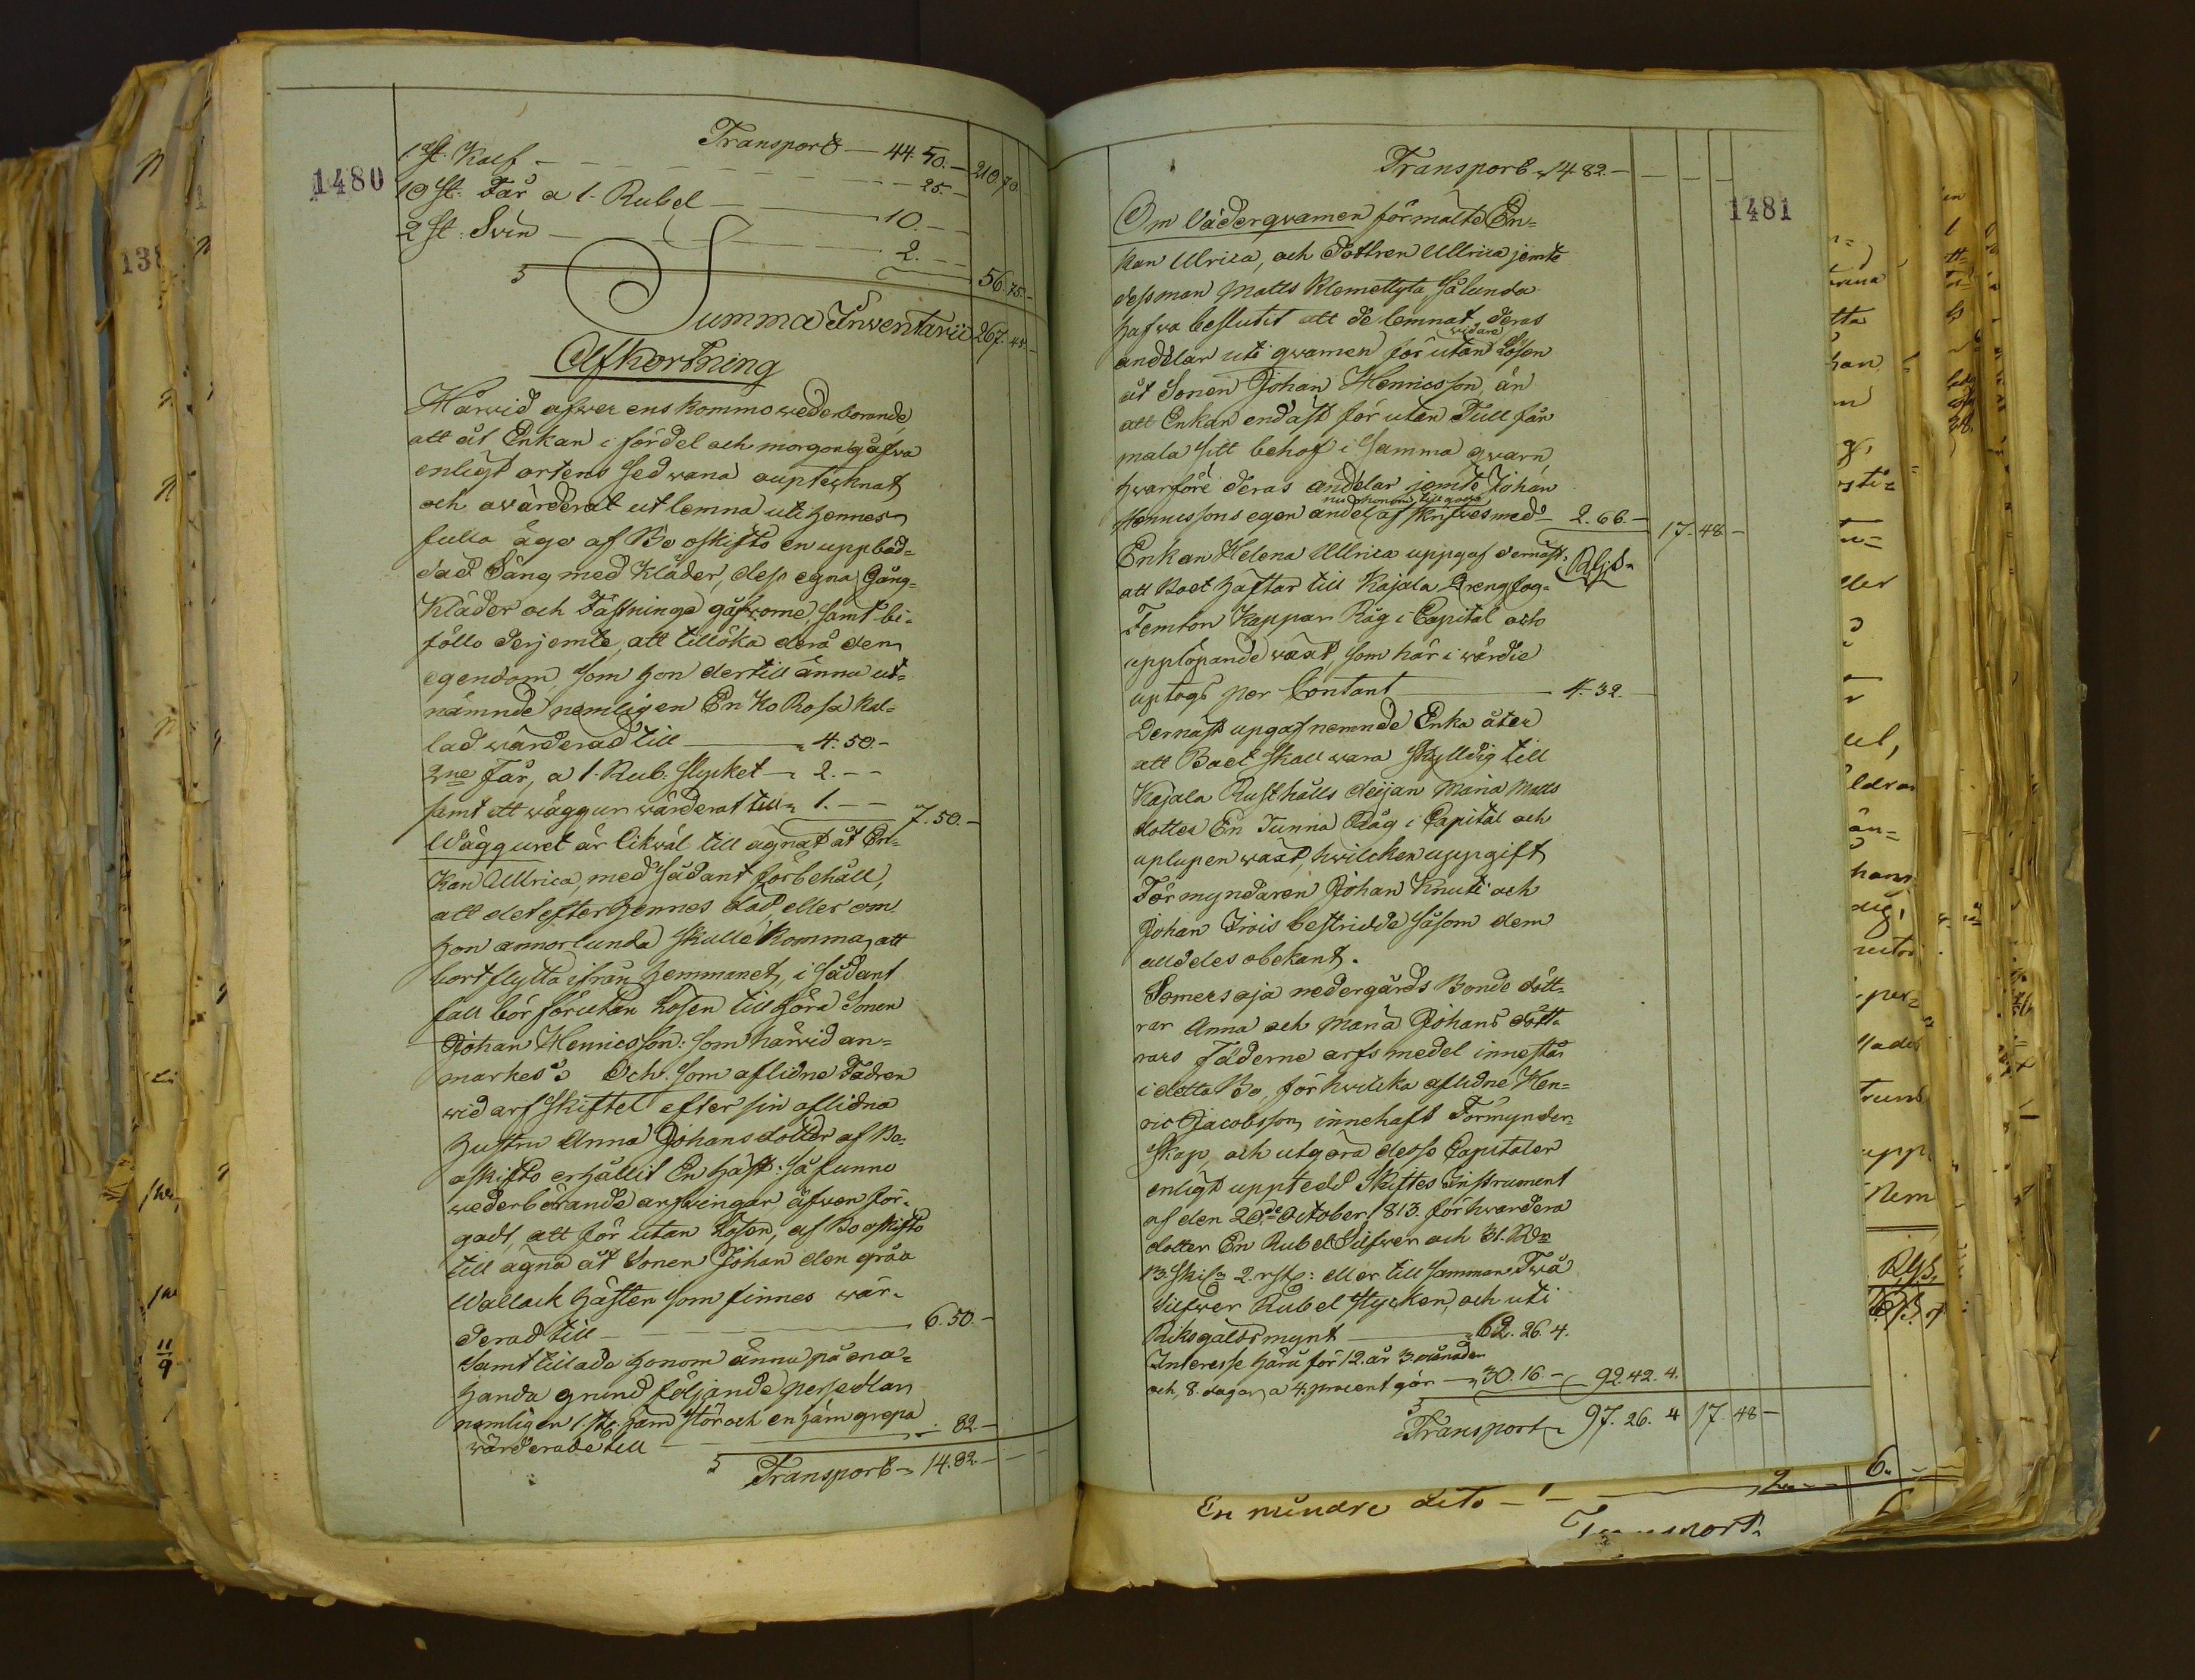 1480
Transport — 44. 50. — 210. 70
1. st. Kalf — — — 25. —
10 st. Får a 1. Rubel — 10. — —
2 st. Svin — 2. — —
56. 75. —
Summa Inventarii 267. 45. —
Afkortning
Härvid öfverens kommo wederbörande,
att åt Enkan i fördel och morgongåfva
enligt ortens sedwana anteknat
och awärderat utlemna uti hennes
fulla ägo af Bo oskifto en uppbäd=
dad Säng med Kläder, dess egna Gång=
Kläder och Fästninge gåfworne, samt bi=
föllo derjemte, att tillöka dera den
egendom som hon dertill ännu ut=
nämnde nemligen En Ko Rosa kal=
lad wärderad till — 4. 50. —
2ne Får, a 1. Rub. stycket — 2. — —
samt ett wäggur wärderat till 1. — — 7. 50. —
Wägguret är likwäl till ägnat åt En=
kan Ullrica, med sådant förbehåll,
att det efter hennes död, eller om
hon annorlunda skulle komma att
bortflytta ifrån hemmanet, i sådant
fall bör förutan lösen tillhöra Sonen
Johan Henricsson: som härvid an=
märkes: Och som aflidne Fadren
wid arfskiftet efter sin aflidna
hustru Anna Johansdotter af Bo
oskifto erhållit En häst: så funno
wederbörande arfwingar äfwen för
godt, att för utan lösen, af Bo oskifto
till ägna åt Sonen Johan den gråa
Wallack hästen som finnes wär=
derad till — 6. 50. —
Samt tillade honom ännu på ena=
handa grund följande persedlar
nemligen 1. st. Järn stör och en Järn grepa
wärderade till — 82 —
Transport — 14. 82. — — —
1481
Transport 14 82. — — — —
Om Vädergvarnen förmälte En=
kan Ulrica, och Dottren Ullrica jemte
dess man Matts Klemettyla sålunda
hafva beslutit att de lemnat deras
andelar uti gvarnen för utan widare Lösen
åt Sonen Johan Henricsson, än
att Enkan endast för utan Tull får
mala sitt behof i samma gvarn,
hvarföre deras andelar jemte Johan
Henricssons egen andel nu honom till godo afskrifves med — 2. 66. — 17. 48 —
Enkan Helena Ullrica uppgaf dernäst,
att Boet häftar till Kajala Dreng Jog=
Femton Kappar Råg i Capital och
upplöpande wäxt, som här i wärdie
uptogs per Contant — 4. 32. —
Dernäst upgaf nemnde Enka åter
att Boet skall wara skylldig till
Kajala Rusthålls deijan Maria Matts
dotter En Tunna Råg i Capital och
uplupen wäxt, hwilcken uppgift
Förmyndaren Johan Knuti och
Johan Irois bestridde såsom dem
alldeles obekant.
Somersoja nedergårds Bonde dött=
rar Anna och Maria Johans dött=
rars Fäderne arfs medel innestår
i detta Bo, för hwilcka aflidne Hen=
ric Jacobsson innehaft Förmynder=
skap, och utgöra desse Capitaler
enligt uppteedd Skiftes Instrument
af den 20de October 1813. för hwardera
dotter En Rubel Silfwer och 31. Rdr
13. Skil. 2. rst: eller till samman Twå
Silfwer Rubel stycken, och uti
Riksgäldsmynt — 62. 26. 4.
Interesse härå för 12. år 3. månader
och 8. dagar a 4. procent gör — 30. 16. — 92. 42. 4.
Transport 97. 26. 4 17. 48 —
En mindre dito — 1 — 6.
Transport